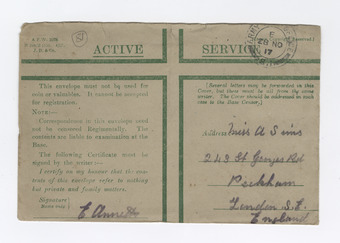 ACTIVE SERVICE
This envelope must not be used for
coin or valuables. It cannot be accepted
for registration.
NOTE:—
Correspondence in this envelope need
not be censored Regimentally. The
contents are liable to examination at the
Base.
The following Certificate must be
signed by the writer:—
I certify on my honour that the con-
tents of this envelope refer to nothing
but private and family matters.
Signature
Name only
E Annetts
[Several letters may be forwarded in this
Cover, but these must be all from the same
writer. The Cover should be addressed in such
case to the Base Censor.]
Address
Miss A Sims
243 St Georges Rd
Peckham
London S.E.
England
28 NO
17